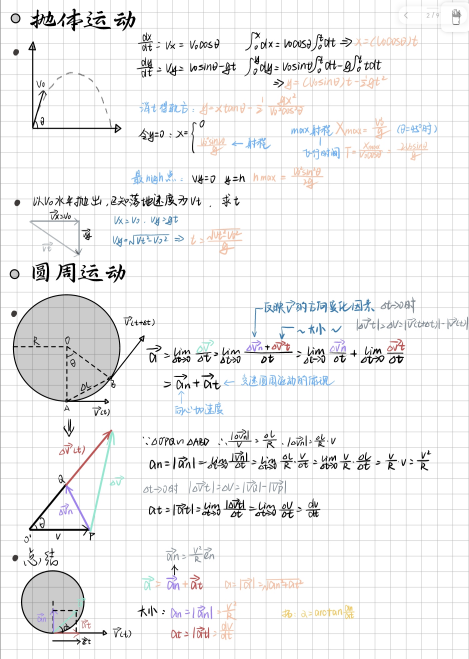 279
抛体运动
dx/dt = Vx = V₀cosθ ∫₀ˣdx = V₀cosθ∫₀ᵗdt ⇒ x=(V₀cosθ)t
dy/dt = Vy = V₀sinθ-gt ∫₀ʸdy = V₀sinθ∫₀ᵗdt-g∫₀ᵗtdt
⇒ y=(V₀sinθ)t-½gt²
V₀
θ
消t
y=xtanθ-½ gx²/V₀²cos²θ
令y=0: x={0
←射程
max射程 Xmax= V₀²/g (θ=45°时)
飞行时间 T= Xmax/V₀cosθ = 2V₀sinθ/g
最high点: Vy=0 y=h hmax= V₀²sin²θ/2g
以V₀水平抛出,已知落地速度为Vt, 求t
Vx=V₀
Vx=V₀ Vy=gt
Vy=√Vt²-V₀² ⇒ t=√Vt²-V₀²/g
Vt
Vy
圆周运动
反映V的方向变化因素 Δt→0时
~大小~ |ΔVt|=ΔV=|V(t+Δt)|-|V(t)|
V(t+Δt)
R
O
θ
B
ΔL
A
V(t)
a = lim Δt→0 ΔV/Δt = lim Δt→0 ΔVn+ΔVt/Δt = lim Δt→0 ΔVn/Δt + lim Δt→0 ΔVt/Δt
= an+at ← 变速圆周运动的情况
向心加速度
ΔV(t)
ΔV
Q
ΔVn
O'
θ
V
P
∴ |ΔVn|/V = ΔL/R ∴|ΔVn|=ΔL/R·V
an=|an|=lim Δt→0 |ΔVn|/Δt=lim Δt→0 ΔL/R·V/Δt=lim Δt→0 V/R·ΔL/Δt=V/R·V=V²/R
Δt→0时 |ΔVt|=ΔV
at=|at|=lim Δt→0 |ΔVt|/Δt=lim Δt→0 ΔV/Δt=dV/dt
总结
an=V²/R en
a=an+at a=|a|=√an²+at²
大小: an=|an|=V²/R
at=|at|=dV/dt
an
at
V(t)